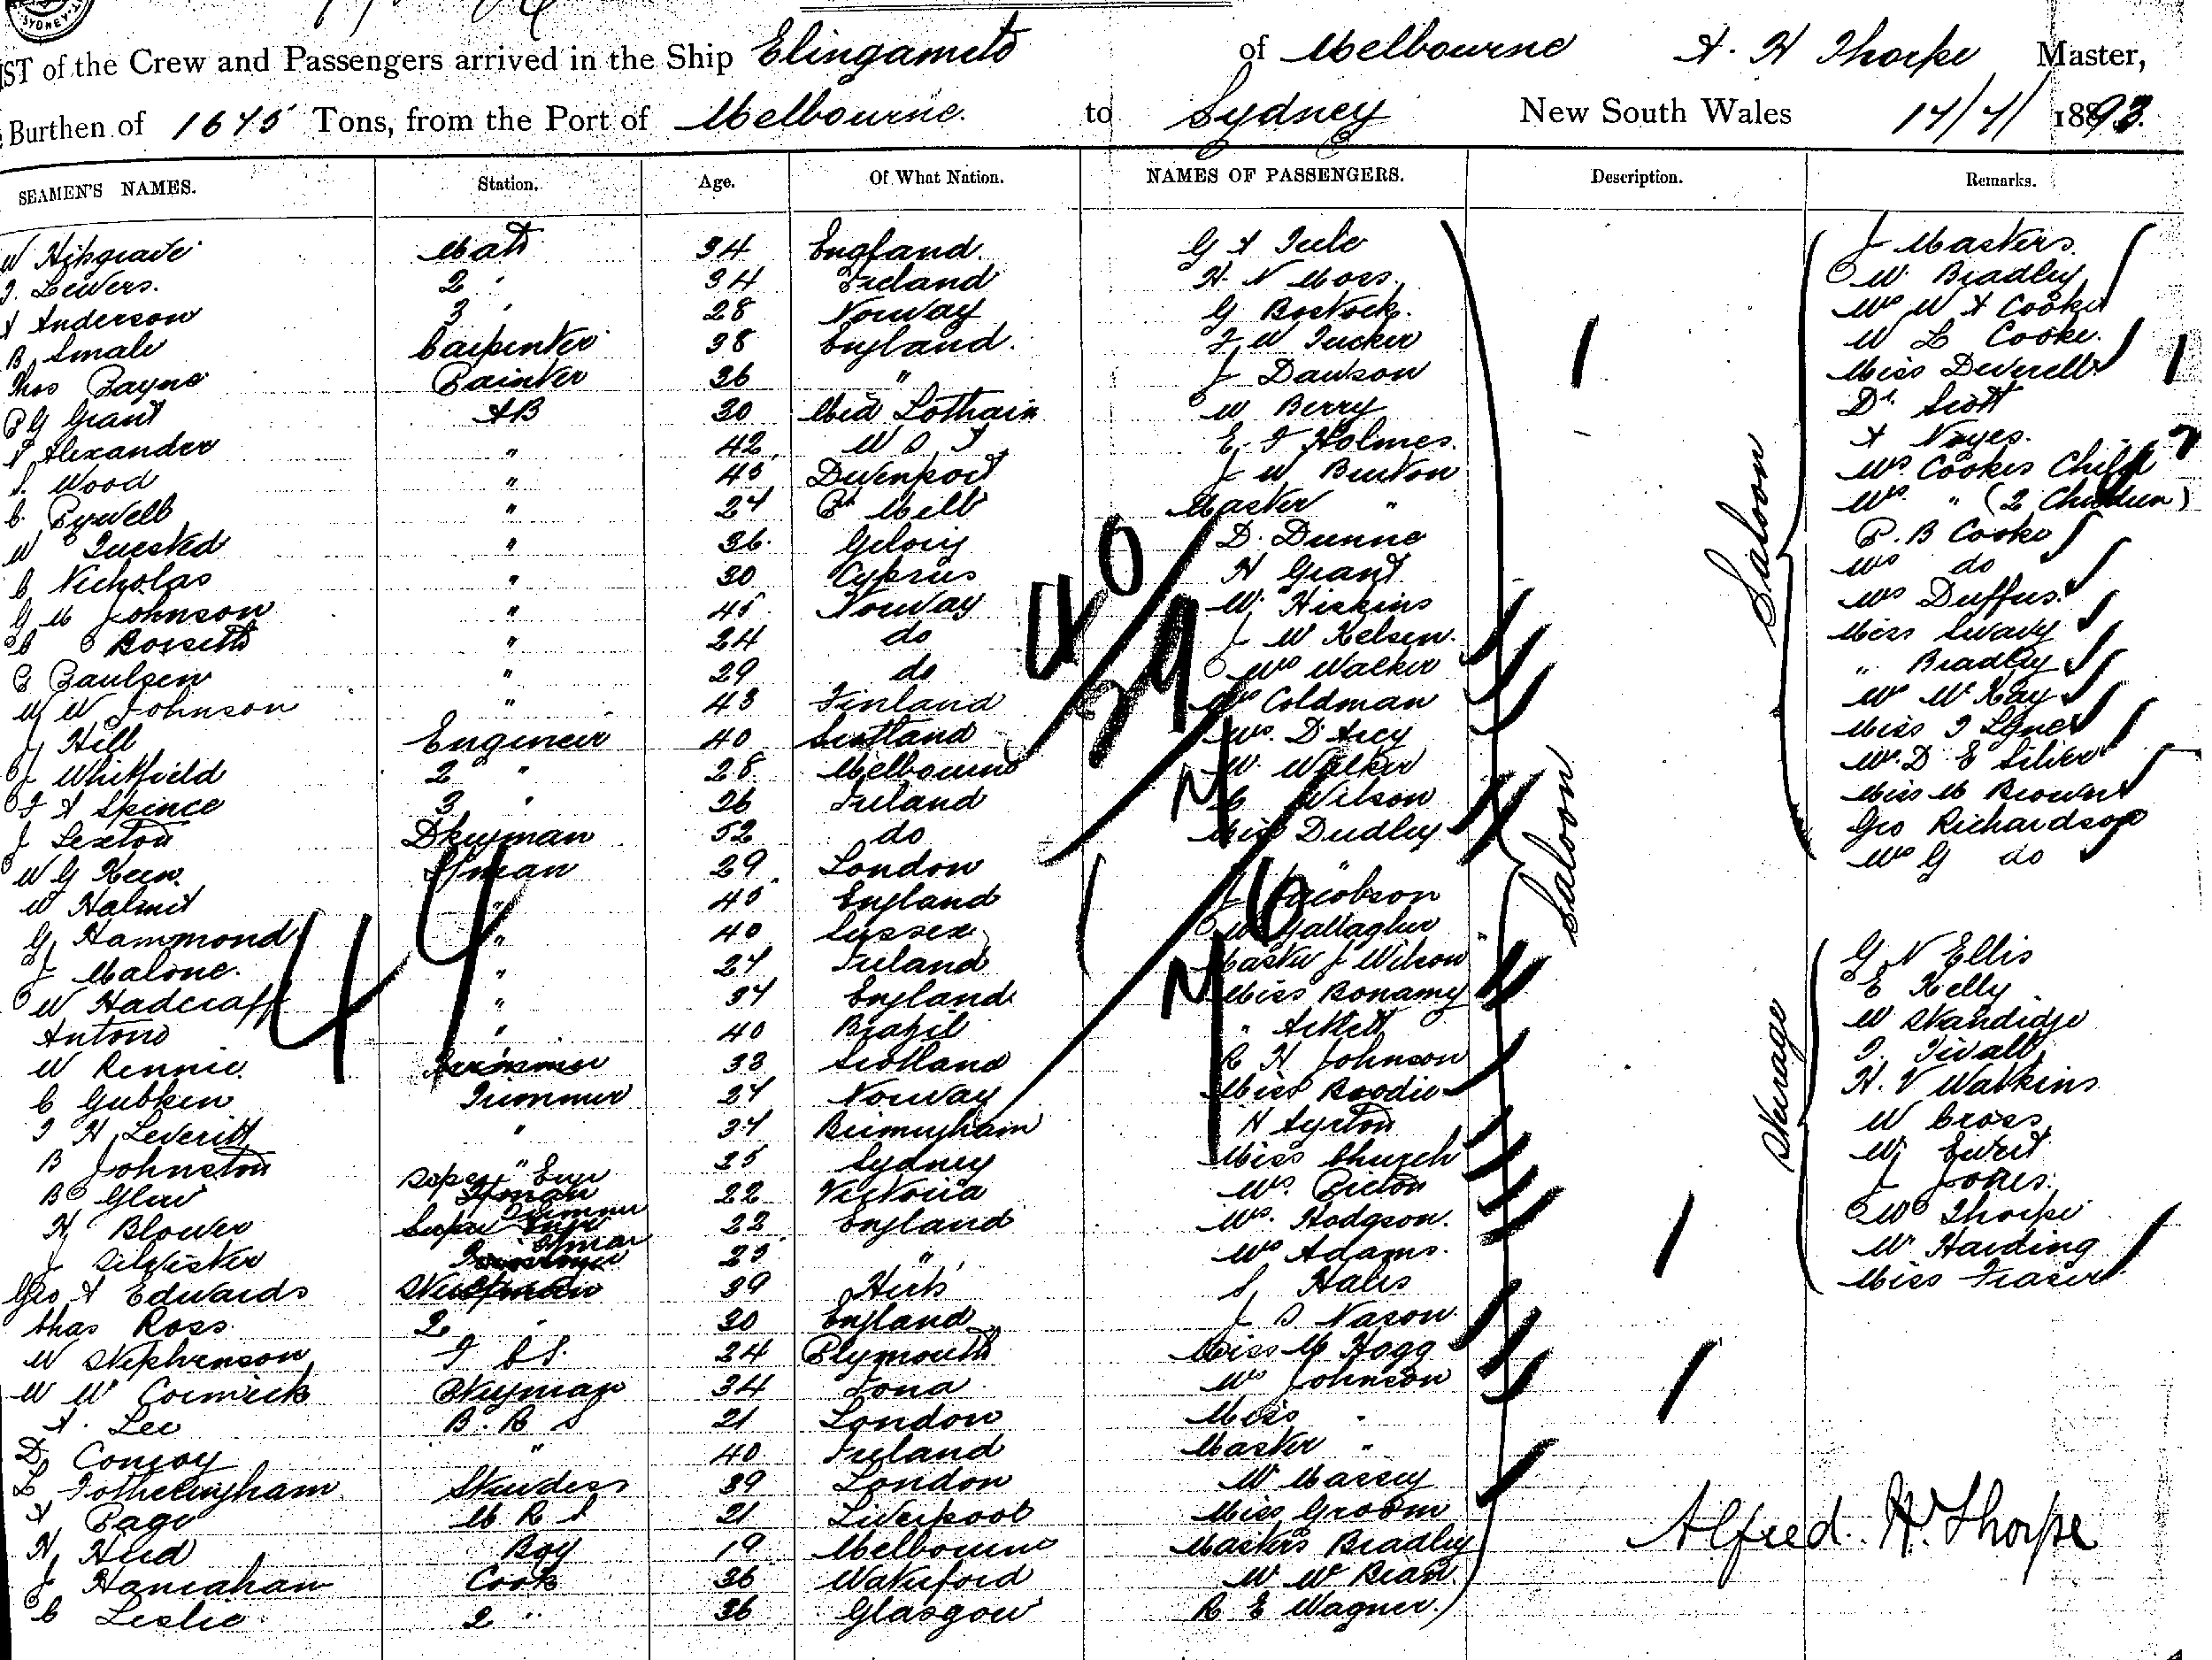 SYDNEY
LIST of the Crew and Passengers arrived in the Ship Elingamite of Melbourne A. H Thorpe Master,
Burthen of 1675 Tons, from the Port of Melbourne. to Sydney New South Wales 14/4/1893.
SEAMEN'S NAMES. Station. Age. Of What Nation. NAMES OF PASSENGERS. Description. Remarks.
W Mate 34 England. G A J Masters.
T. Lewers. 2 " 34 Ireland H. N Moss. W. Bradley
A Anderson 3 " 28 Norway G Bostock. Mrs W A Cooke
B Smale Carpenter 38 England. F W Tucker W L Cooke.
Thos Payne Painter 36 " J Dawson Miss Deverell
P G Grant AB 30 Mid Lothain W Berry Dr. Scott
Alexander " 42 W E. J Holmes. A Noyes.
S. Wood " 43 Devenport J W Burton Mrs Cookes Child
C. " 24 Pt Melb Master " Mrs " (2 Children)
W Quested " 36 D. Dunne P. B Cooke
C Nicholas " 30 Cyprus H Grant Mrs do
G M Johnson " 45 Norway W. Hiskins Mrs Duffus.
" 24 do J W Kelsen. Miss
C Paulsen " 29 do Mrs Walker " Bradley
W Johnson " 43 Finland Mrs Coldman Mrs McKay
J Hill Engineer 40 Scotland Mrs. D'Arcy Miss
J Whitfield 2 " 28 Melbourne W. Walker Mrs. D E Silver
T A Spence 3 " 26 Ireland C Wilson Miss M Brown
J Sexton Dkeyman 52 do Miss Dudley Geo Richardson
W G Keen. Fman 29 London " Mrs G do
W Halmit " 40 England J Jacobson
G Hammond " 40 Sussex Gallagher
J Malone. " 24 Ireland Master J Wilson G N Ellis
W Hadcraft " 34 England Miss Bonamy E Kelly
Antone " 40 Brazil " W Standidge
W Rennie. 33 Scotland R H Johnson
C Gubken Trimmer 24 Norway Miss H. V Watkins
T H Leveritt " 34 Birmingham H Ayrton W Cross
B Johnston " 25 Sydney Miss Church W Ewert
B Glew 22 Victoria Mrs. Picton J Jones.
H Blower 22 England Mrs. Hodgson. W Thorpe
J Silvester 23 " Mrs Adams. W Harding
Geo A Edwards 39 Herts S. Hales Miss Fraser
Chas Ross. 2 " 30 England J S Nason.
W Stephenson 24 Plymouth Miss M Hogg
W McCormick 34 Iona Mrs Johnson
A. Lee B. R S 21 London Miss "
D Conroy " 40 Ireland Master "
L Fotheringham Stewdess 39 London W Massey
A Page M R S 21 Liverpool Miss Groom
H Hurd Boy 19 Melbourne Masters Bradley
J Hanrahan Cook 36 Waterford W McBean
C Leslie 2 " 36 Glasgow R E Wagner.
40
29
M
44
M 16
Saloon
Saloon
Steerage
Alfred. H. Thorpe